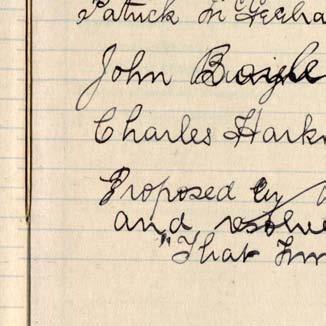 Patrick Mc Geeha
John Boyle
Charles Hark
Proposed by
and resolve
"That